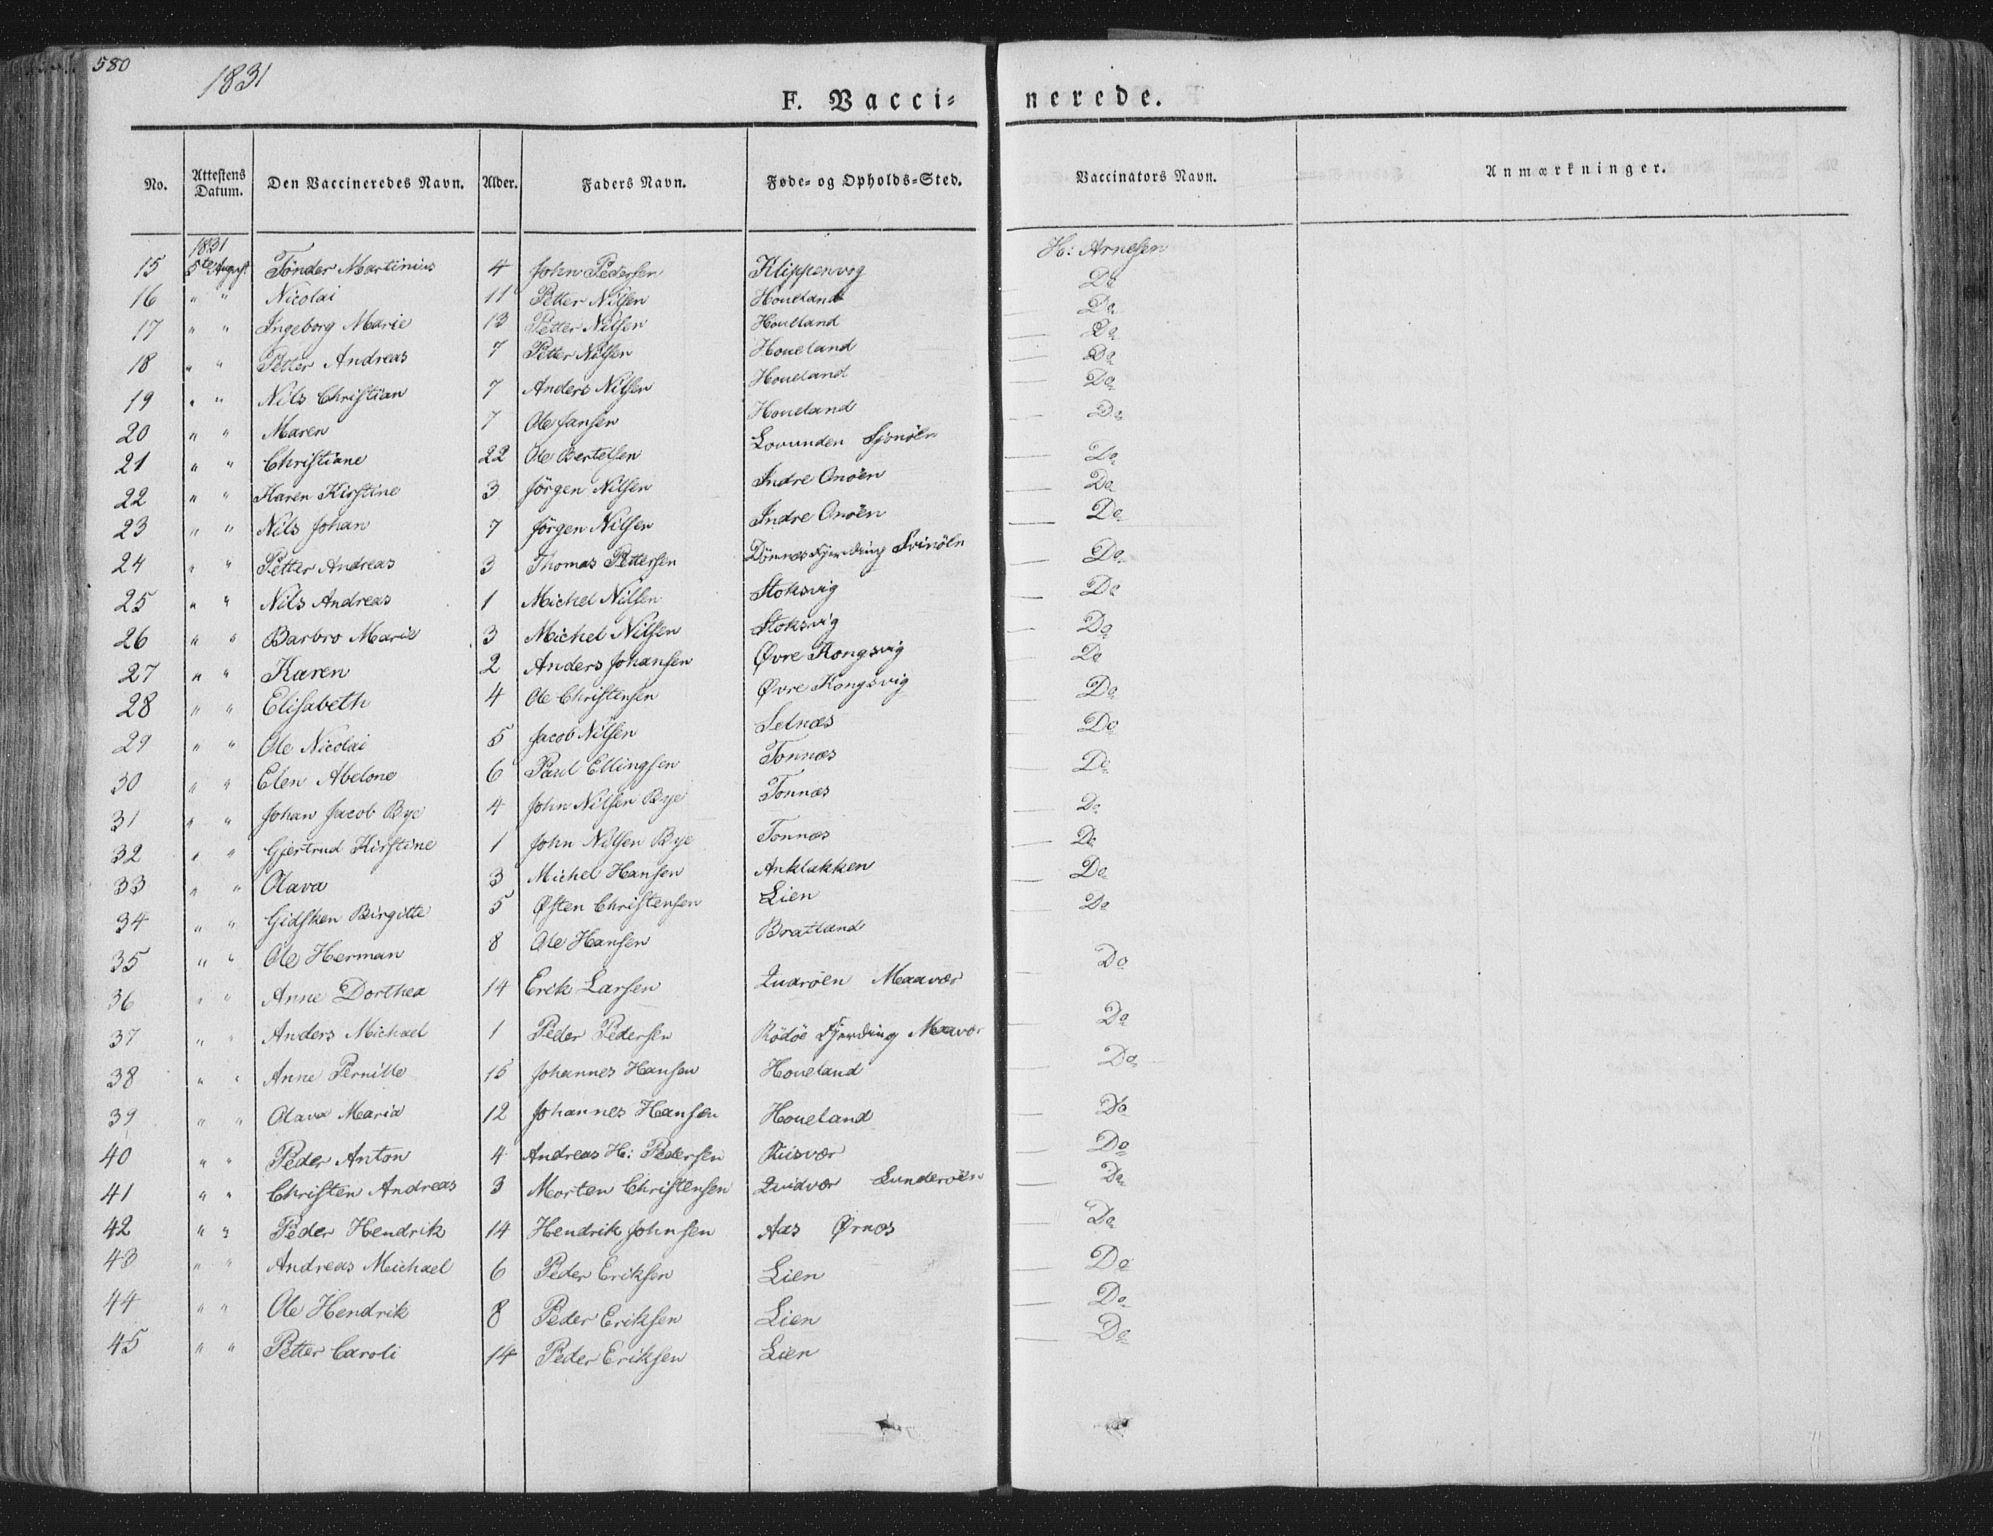 580
1831
F. Vacci= nerede.
No. Attestens Datum. Den Vaccineredes Navn. Alder. Faders Navn. Føde= og Opholds=Sted. Vaccinators Navn. Anmærkninger.
1831
15 5te August Tønder Martinius 4 John Pedersen Klippenvog H: Arnesen
16 " " Nicolai 11 Petter Nilsen Houeland Do
17 " " Ingeborg Marie 13 Petter Nilsen Houeland Do
18 " " Petter Andreas 7 Petter Nilsen Houeland Do
19 " " Nils Christian 7 Anders Nilsen Houeland Do
20 " " Maren 7 Ole Jansen Houeland Do
21 " " Christiane 22 Ole Bertelsen Lovunden Do
22 " " Karen Kirstine 3 Jörgen Nilsen Indre Onöen Do
23 " " Nils Johan 7 Jörgen Nilsen Indre Onöen Do
24 " " Petter Andreas 3 Thomas Pettersen Dönnes Fjerding Svinöln Do
25 " " Nils Andreas 1 Michel Nilsen Stoksvig Do
26 " " Barbro Marie 3 Michel Nilsen Stoksvig Do
27 " " Karen 2 Anders Johansen Øvre Kongsvig Do
28 " " Elisabeth 4 Ole Christensen Øvre Kongsvig Do
29 " " Ole Nicolai 5 Jacob Nilsen Selnæs Do
30 " " Elen Abelone 6 Paul Ellingsen Tonnæs Do
31 " " Johan Jacob Bye 4 John Nilsen Bye Tonnæs Do
32 " " Gjertrud Kirstine 1 John Nilsen Bye Tonnæs Do
33 " " Olava 3 Michel Hansen Anklakken Do
34 " " Gidsken Birgitte 5 Østen Christensen Lien Do
35 " " Ole Herman 8 Ole Hansen Bratland Do
36 " " Anne Dorthea 14 Erik Larsen Quaröen Maavær Do
37 " " Anders Michael 1 Peder Pedersen Rödöe Fjerding Maavær Do
38 " " Anne Pernille 15 Johannes Hansen Houeland Do
39 " " Olava Maria 12 Johannes Hansen Houeland Do
40 " " Peder Anton 4 Andreas H: Pedersen Riisvær Do
41 " " Christen Andreas 3 Morten Christensen Quidvær Sunderöen Do
42 " " Peder Hendrik 14 Hendrik Johnsen Aas Ørnæs Do
43 " " Andreas Michael 6 Peder Eriksen Lien Do
44 " " Ole Hendrik 8 Peder Eriksen Lien Do
45 " " Petter Caroli 14 Peder Eriksen Lien Do